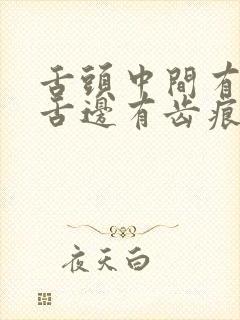 舌頭中間有
舌邊有齿痕
夜天白